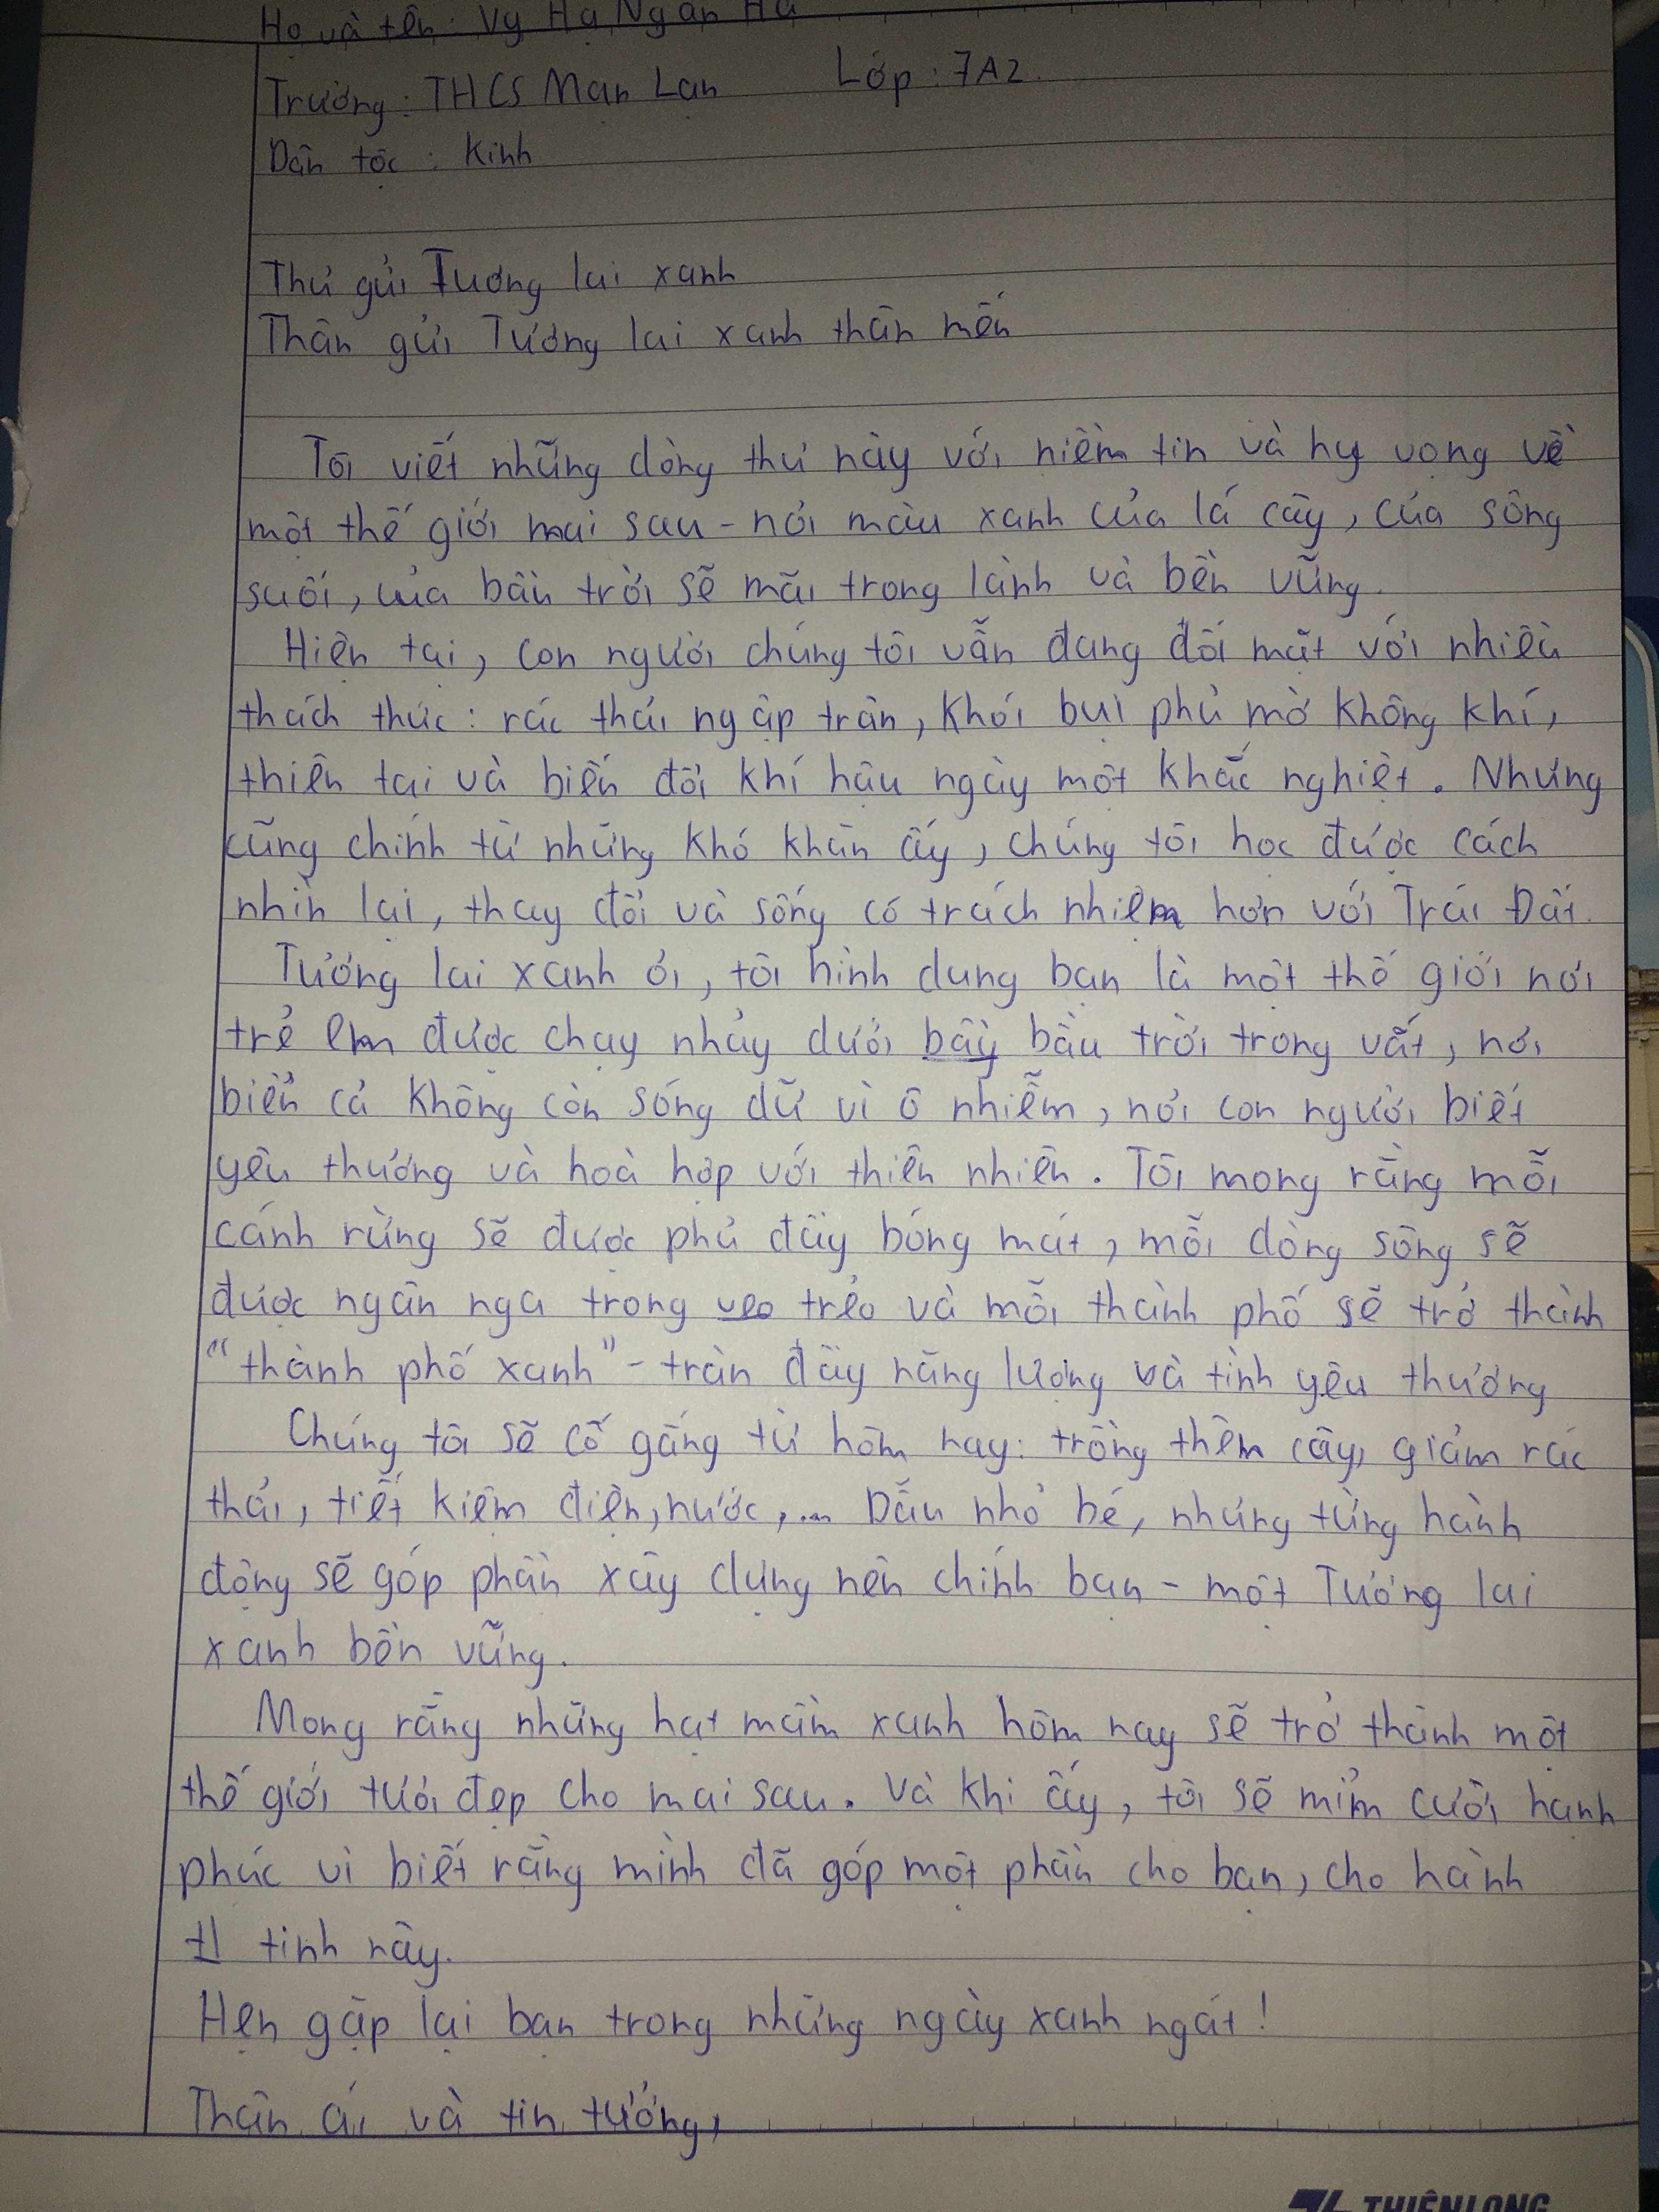 Họ và tên: Vy Hạ Ngân Hà
Trường: THCS Mạn Lạn Lớp: 7A2.
Dân tộc: Kinh
Thư gửi Tương lai xanh
Thân gửi Tương lai xanh thân mến
Tôi viết những dòng thư này với niềm tin và hy vọng về
một thế giới mai sau - nơi màu xanh của lá cây, của sông
suối, của bầu trời sẽ mãi trong lành và bền vững.
Hiện tại, con người chúng tôi vẫn đang đối mặt với nhiều
thách thức: rác thải ngập tràn, khói bụi phủ mờ không khí,
thiên tai và biến đổi khí hậu ngày một khắc nghiệt. Nhưng
cũng chính từ những khó khăn ấy, chúng tôi học được cách
nhìn lại, thay đổi và sống có trách nhiệm hơn với Trái Đất.
Tương lai xanh ơi, tôi hình dung bạn là một thế giới nơi
trẻ em được chạy nhảy dưới bầy bầu trời trong vắt, nơi
biển cả không còn sóng dữ vì ô nhiễm, nơi con người biết
yêu thương và hoà hợp với thiên nhiên. Tôi mong rằng mỗi
cánh rừng sẽ được phủ đầy bóng mát, mỗi dòng sông sẽ
được ngân nga trong veo trẻo và mỗi thành phố sẽ trở thành
"thành phố xanh" - tràn đầy năng lượng và tình yêu thương
Chúng tôi sẽ cố gắng từ hôm nay: trồng thêm cây, giảm rác
thải, tiết kiệm điện, nước,... Dẫu nhỏ bé, nhưng từng hành
động sẽ góp phần xây dựng nên chính bạn - một Tương lai
xanh bền vững.
Mong rằng những hạt mầm xanh hôm nay sẽ trở thành một
thế giới tươi đẹp cho mai sau. Và khi ấy, tôi sẽ mỉm cười hạnh
phúc vì biết rằng mình đã góp một phần cho bạn, cho hành
tinh này.
Hẹn gặp lại bạn trong những ngày xanh ngát!
Thân ái và tin tưởng,
THIÊN LONG